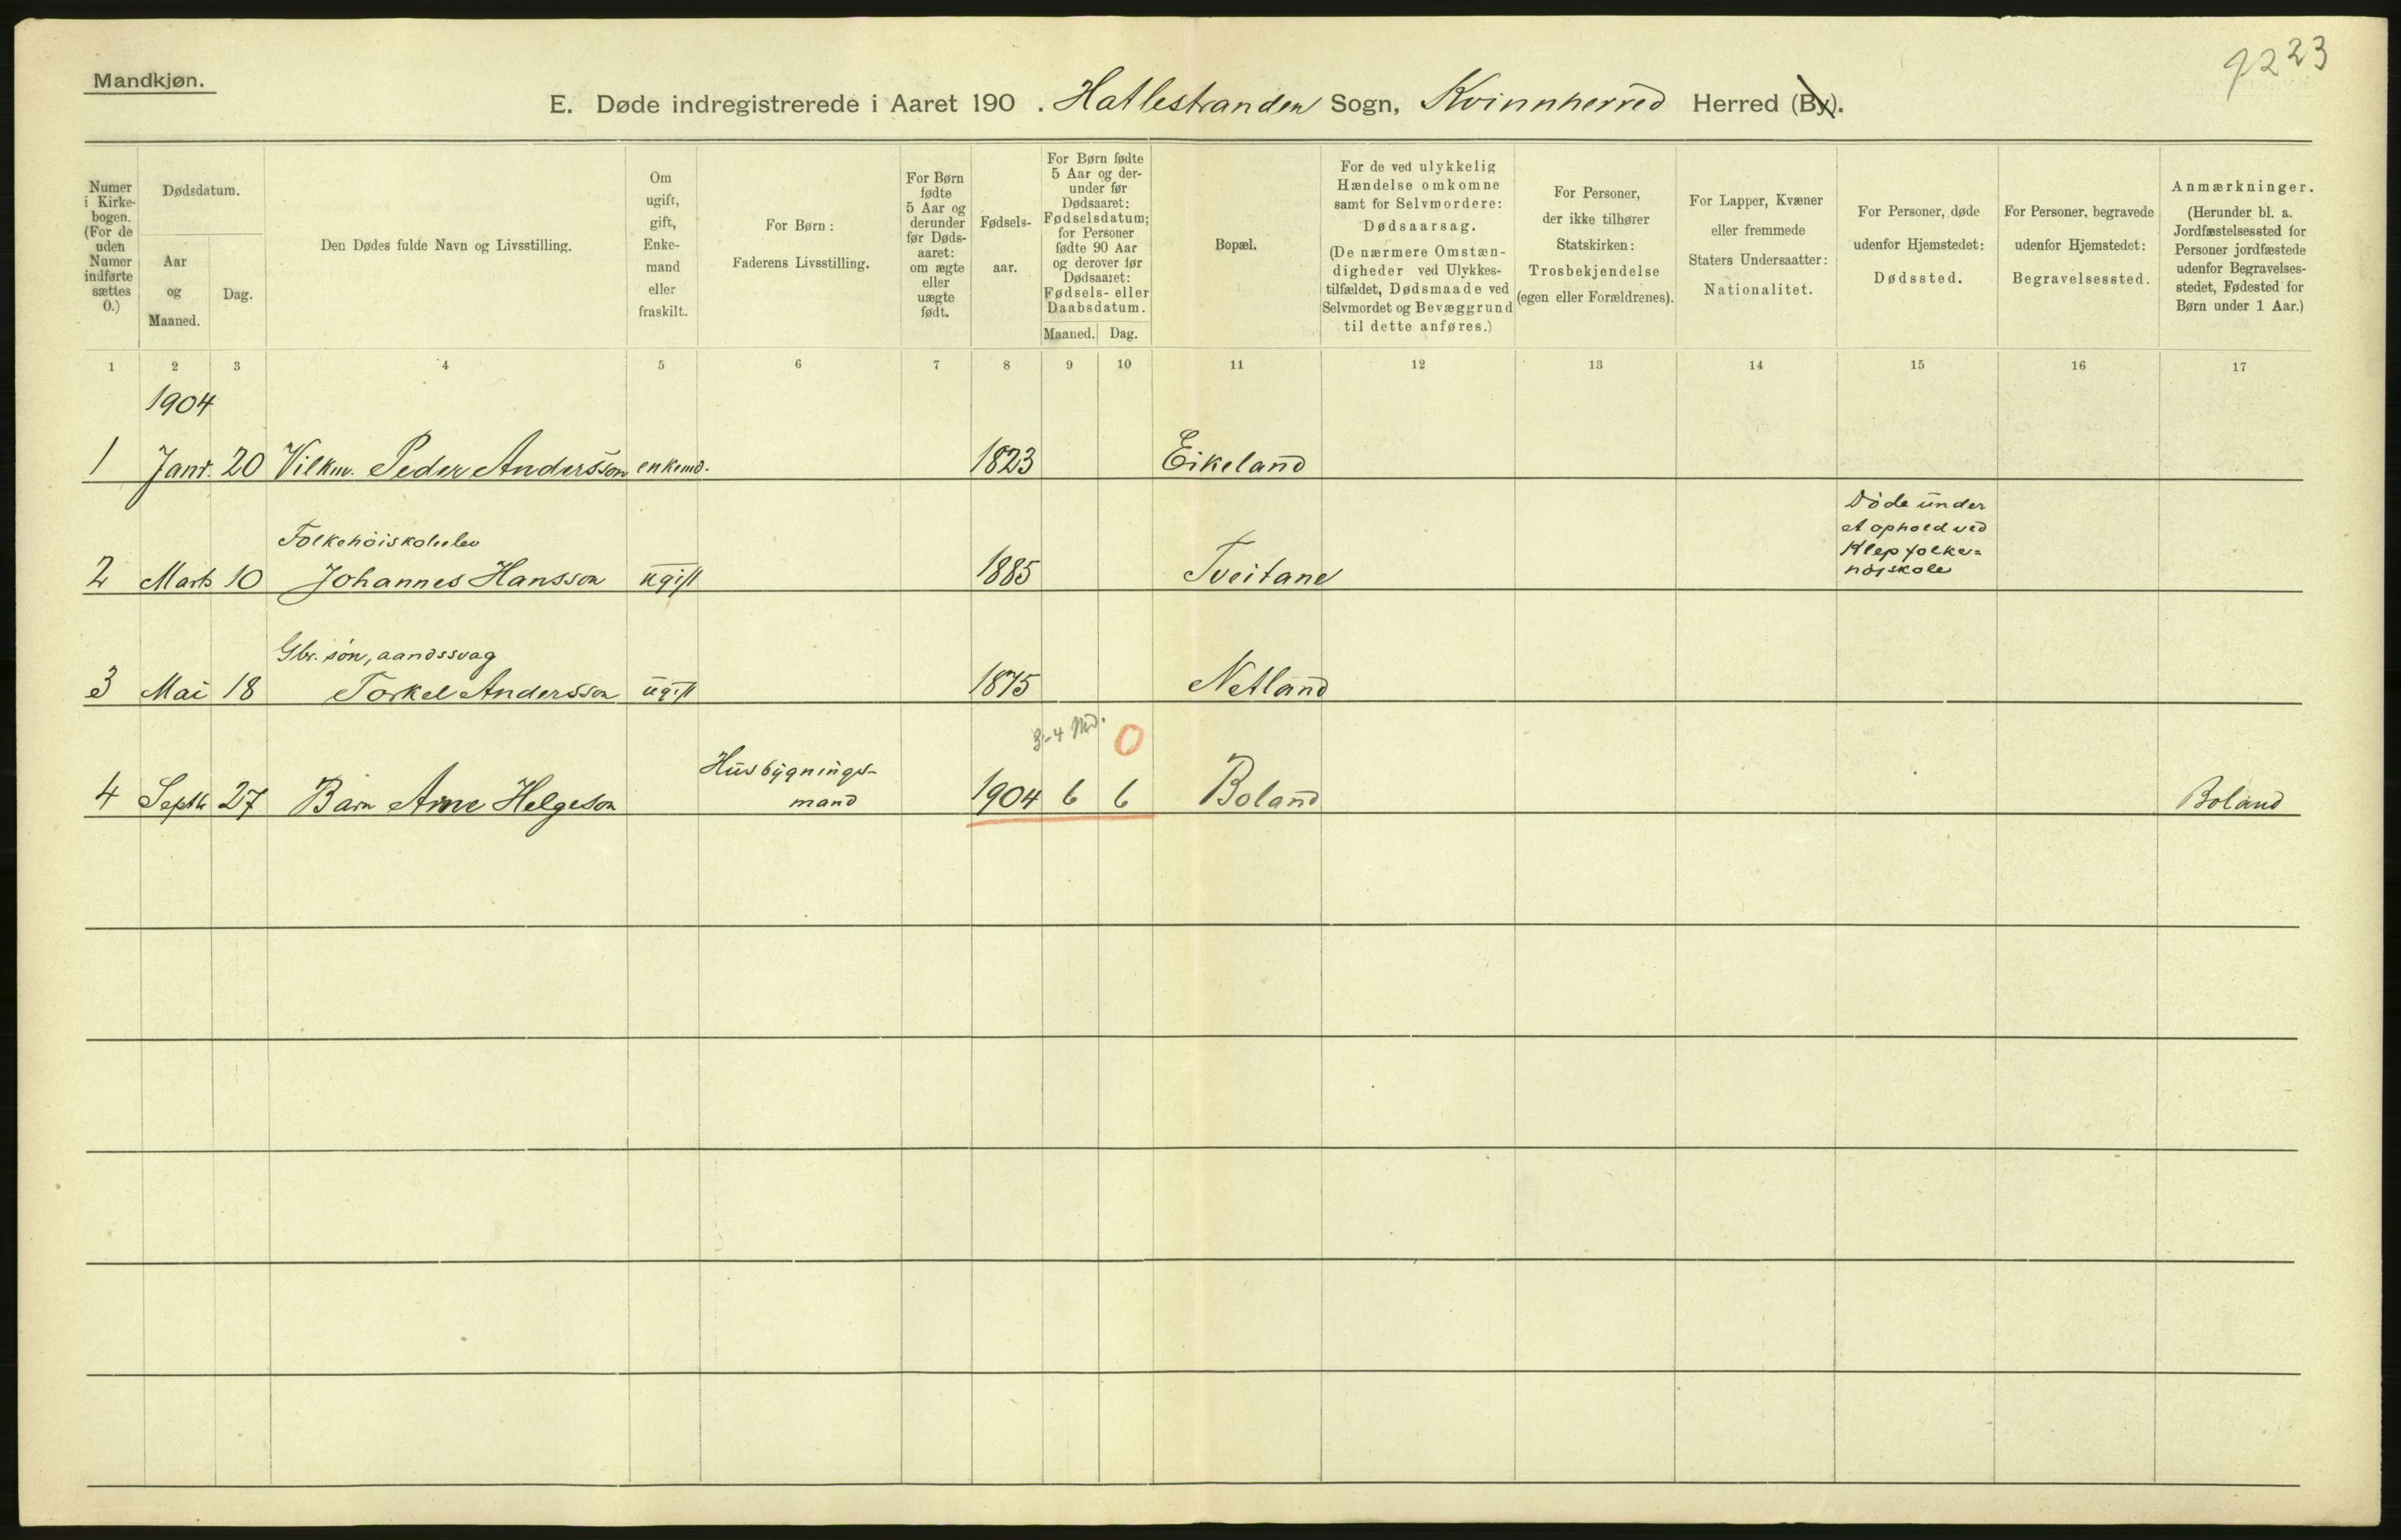 9223
Mandkjøn.
E. Døde indregistrerede i Aaret 190 . Hatlestranden Sogn, Kvinnherred Herred (By).
Numer i Kirke-bogen. (For de uden Numer indførte sættes 0.)
Dødsdatum.
Aar og Maaned.
Dag.
Den Dødes fulde Navn og Livsstilling.
Om ugift, gift, Enke-mand eller fraskilt.
For Børn: Faderens Livsstilling.
For Børn fødte 5 Aar og derunder før Døds-aaret: om ægte eller uægte født.
Fødsels-aar.
For Børn fødte 5 Aar og der-under før Dødsaaret: Fødselsdatum; for Personer fødte 90 Aar og derover før Dødsaaret: Fødsels- eller Daabsdatum.
Maaned. Dag.
Bopæl.
For de ved ulykkelig Hændelse omkomne samt for Selvmordere: Dødsaarsag. (De nærmere Omstæn-digheder ved Ulykkes-tilfældet, Dødsmaade ved Selvmordet og Bevæggrund til dette anføres.)
For Personer, der ikke tilhører Statskirken: Trosbekjendelse (egen eller Forældrenes).
For Lapper, Kvæner eller fremmede Staters Undersaatter: Nationalitet.
For Personer, døde udenfor Hjemstedet: Dødssted.
For Personer, begravede udenfor Hjemstedet: Begravelsessted.
Anmærkninger. (Herunder bl. a. Jordfæstelsessted for Personer jordfæstede udenfor Begravelses-stedet, Fødested for Børn under 1 Aar.)
1 2 3 4 5 6 7 8 9 10 11 12 13 14 15 16 17
1904
1 Janr. 20 Vilkm. Peder Andersson enkemd. 1823 Eikeland
Folkehøiskoleelev
2 Marts 10 Johannes Hansson ugift 1885 Tveitane
Døde under
et ophold ved
Klep folke=
højskole
Gbr. søn, aandssvag
3 Mai 18 Torkel Andersson ugift 1875 Netland
3-4 Md. 0
Husbygnings-
4 Septb 27 Barn Arne Helgeson mand 1904 6 6 Boland Boland